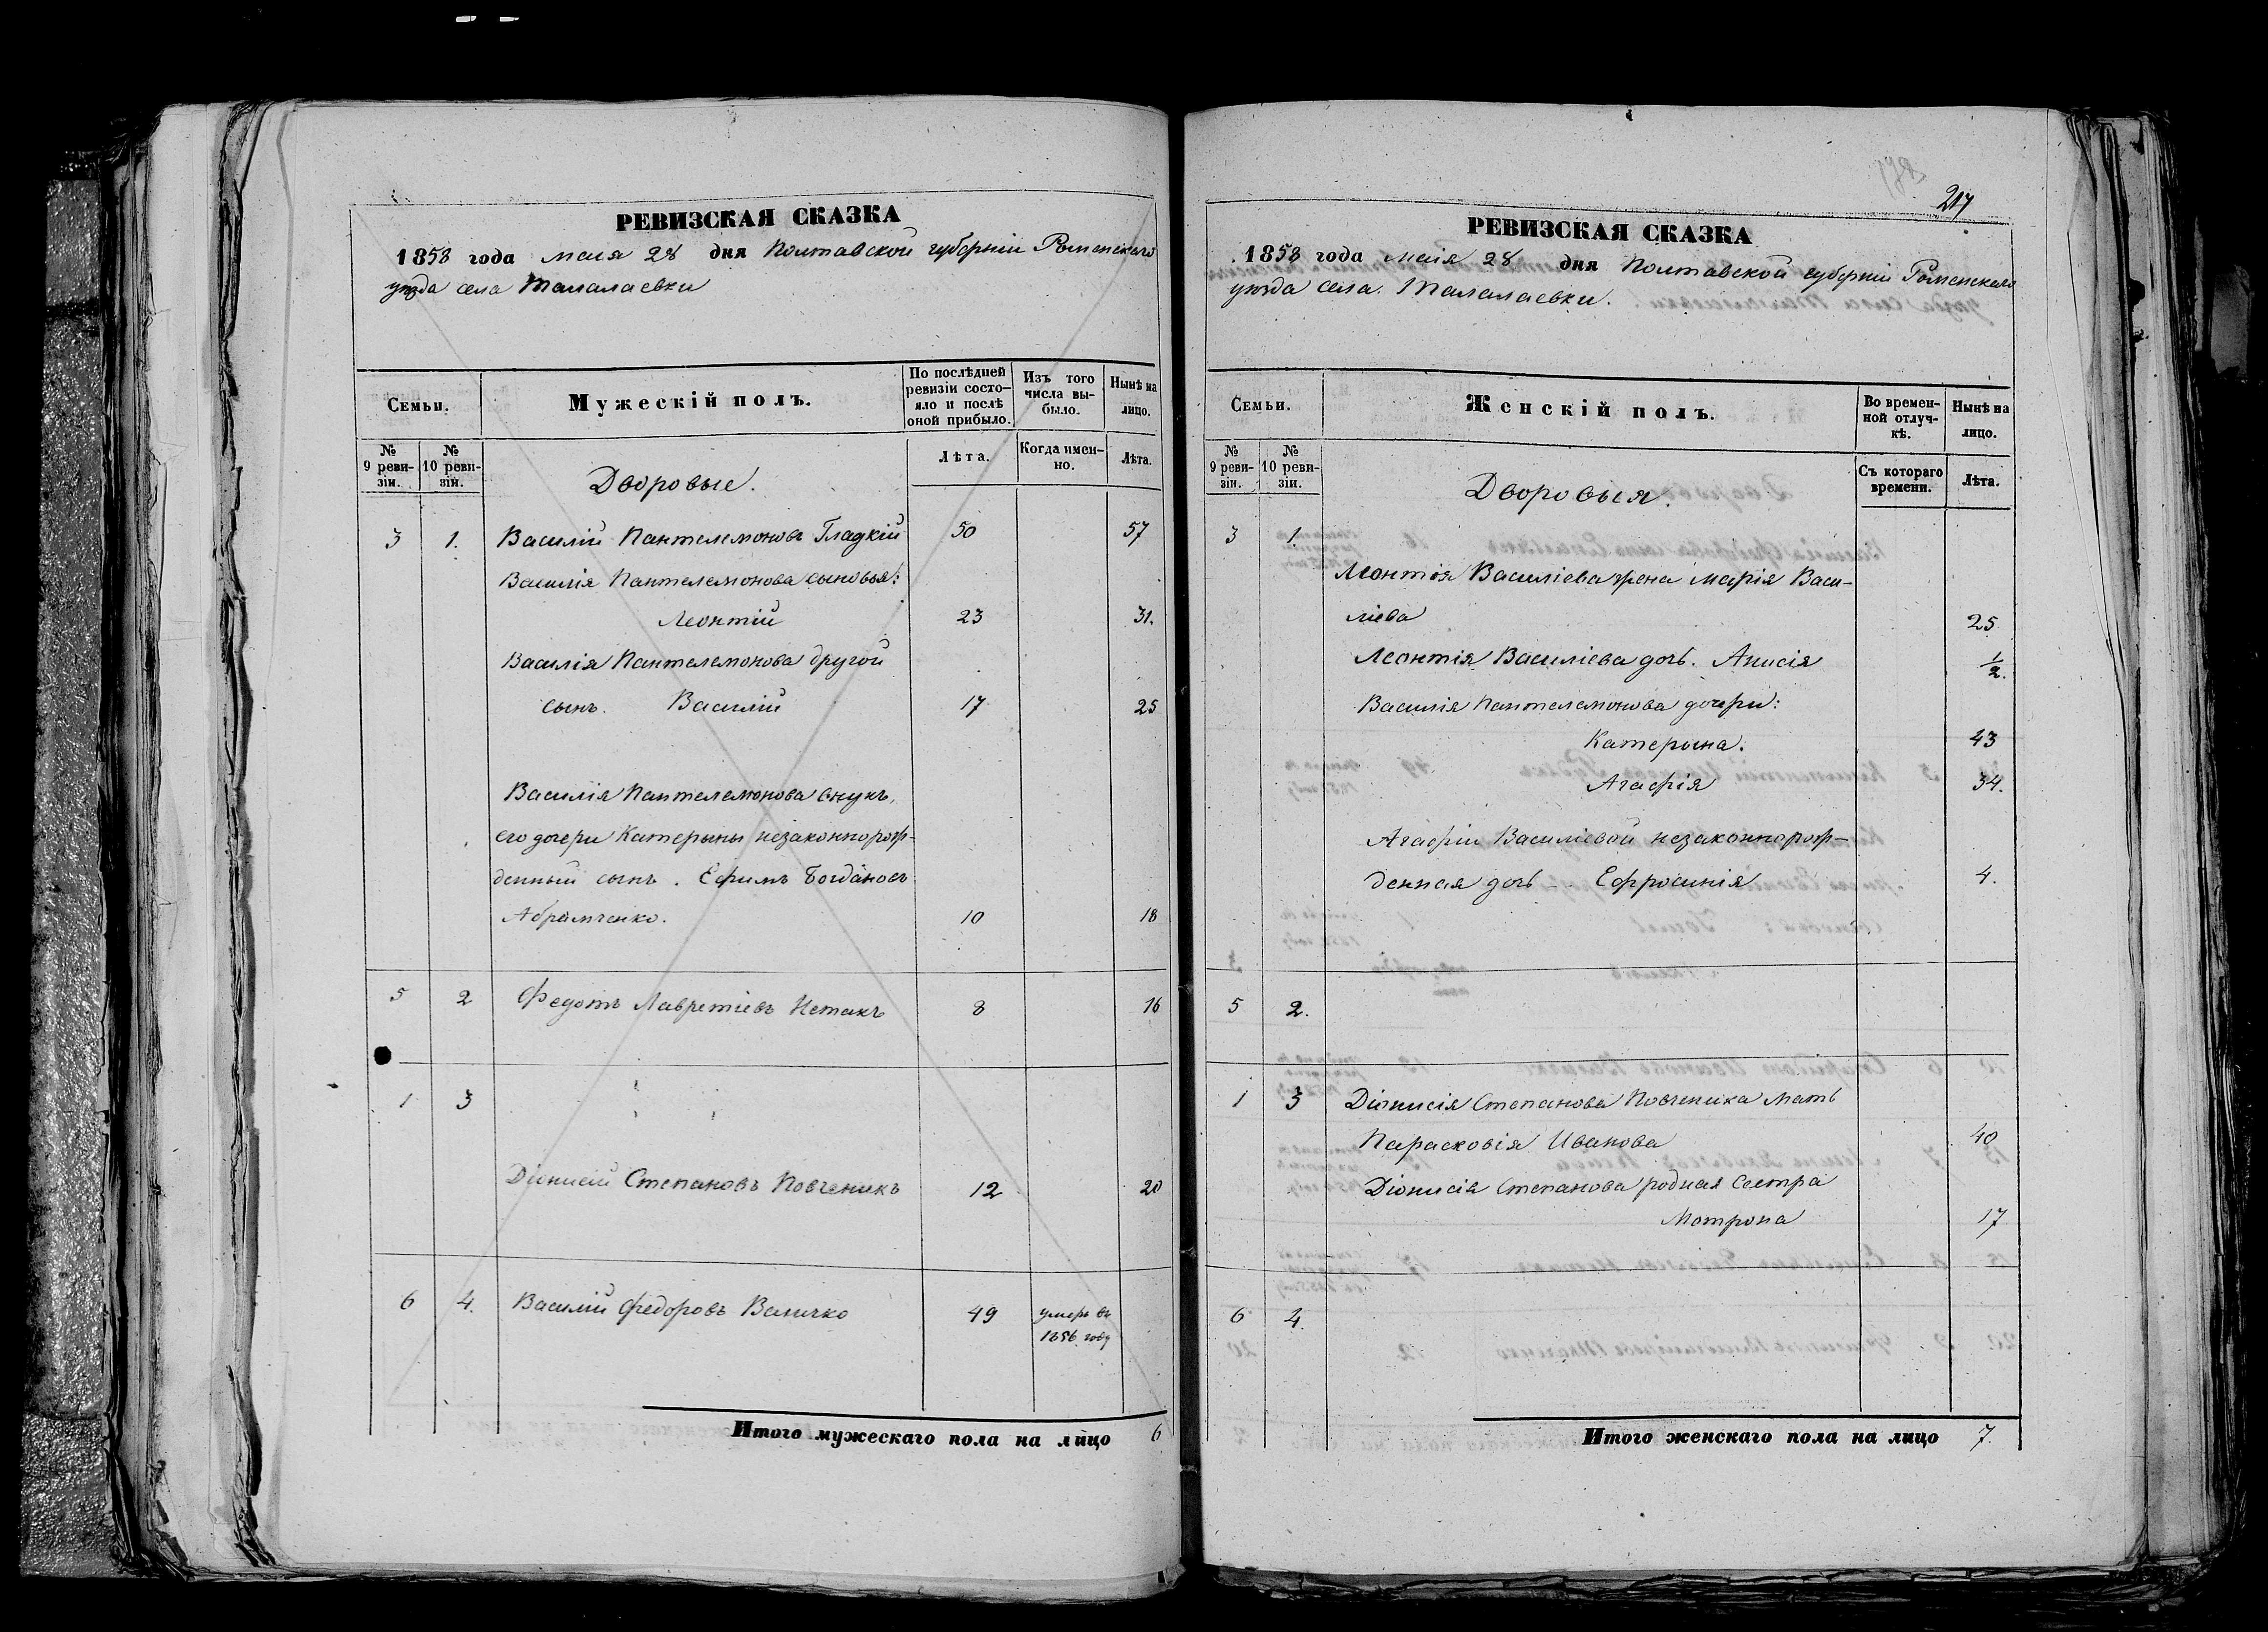 РЕВИЗСКАЯ СКАЗКА
1858 года мая 28 дня Полтавской губерніи Роменскаго
уѣзда села Талалаевки
Семьи.
Мужескій полъ.
По послѣдней ревизіи состояло и послѣ оной прибыло.
Изъ того числа выбыло.
Нынѣ на лицо.
№ 9 ревизіи.
№ 10 ревизіи.
Лѣта.
Когда именно.
Лѣта.
Дворовые.
3 1. Василій Пантелемоновъ Гладкій 50 57
Василія Пантелемонова сыновья:
Леонтій 23 31.
Василія Пантелемонова другой
сынъ. Василій 17 25
Василія Пантелемонова внукъ,
его дочери Катерыны незаконнорож-
денный сынъ. Ефимъ Богдановъ
Абрамченко. 10 18
5 2 Федотъ Лавретіевъ Нетакъ 8 16
1 3
Діонисій Степановъ Повченикъ 12 20
6 4. Василій Федоровъ Величко 49 умеръ въ
1856 году
Итого мужескаго пола на лицо 6
217
РЕВИЗСКАЯ СКАЗКА
1858 года маія 28 дня Полтавской губерніи Роменскаго
уѣзда села Талалаевки.
Семьи.
Женскій полъ.
Во временной отлучкѣ.
Нынѣ на лицо.
№ 9 ревизіи.
№ 10 ревизіи.
Съ котораго времени.
Лѣта.
Дворовыя.
3 1.
Леонтія Василіева жена Марія Васи-
ліева 25
Леонтія Василіева дочь. Анисія 1/2.
Василія Пантелемонова дочери:
Катерына. 43
Агафія 34.
Агафіи Василіевой незаконнорож-
денная дочь Ефросинія 4.
5 2.
1 3 Діонисія Степанова Повченика мать
Парасковія Иванова 40
Діонисія Степанова родная сестра
Мотрона 17
6 4.
Итого женскаго пола на лицо 7.